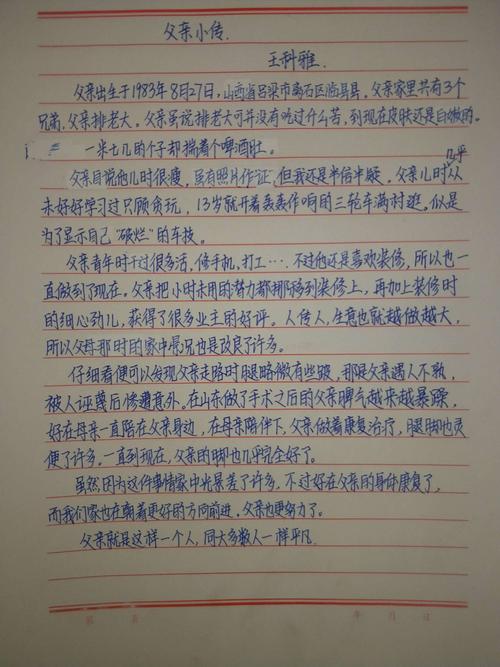 父亲小传.
王科雅.
父亲出生于1983年8月27日,山西省吕梁市离石区临县县,父亲家里共有3个
兄弟,父亲排老大。父亲虽说排老大可并没有吃过什么苦,到现在皮肤还是白嫩的。
一米七几的个子却揣着个啤酒肚。
父亲自说他儿时很瘦,虽有照片作证,但我还是半信半疑。父亲儿时几乎从
未好好学习过只顾贪玩,13岁就开着轰轰作响的三轮车满村逛。似是
为了显示自己“破烂”的车技。
父亲青年时干过很多活,修手机,打工….不过他还是喜欢装修,所以也一
直做到了现在。父亲把小时未用的努力都挪移到装修上,再加上装修时
的细心劲儿,获得了很多业主的好评。人传人,生意也就越做越大,
所以父母那时的家中景况也是改良了许多。
仔细看便可以发现父亲走路时腿略微有些跛,那是父亲遇人不熟,
被人诬蔑后修遭意外。在山东做了手术之后的父亲脾气越来越暴躁,
好在母亲一直陪在父亲身边,在母亲陪伴下,父亲做着康复治疗,腿脚也灵
便了许多。一直到现在,父亲的脚也几乎完全好了。
虽然因为这件事情家中光景差了许多,不过好在父亲的身体康复了,
而我们家也在朝着更好的方向前进。父亲也更努力了。
父亲就是这样一个人,同大多数人一样平凡.
年 月 日